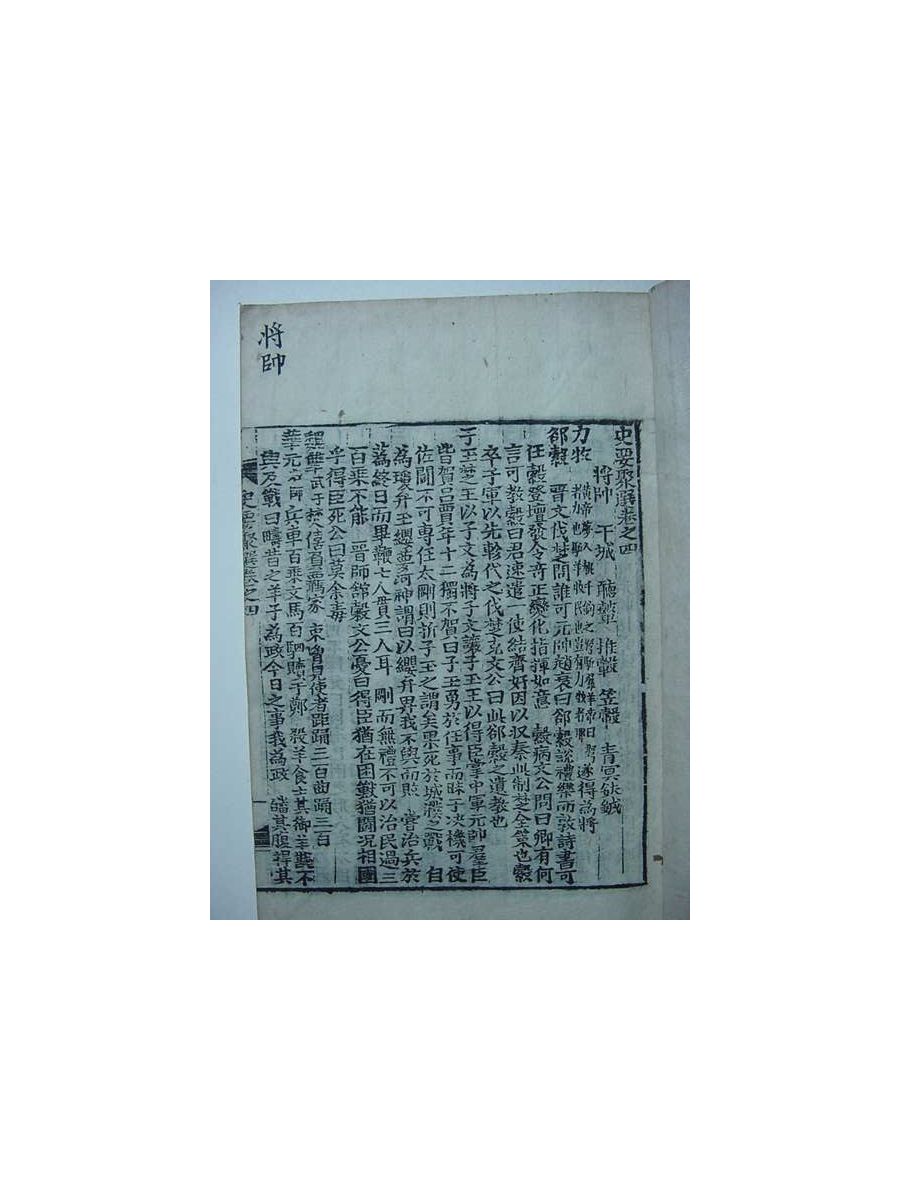 將帥
史要聚選卷之四
將帥 干城 聽鼙 推轂 笠轂 青冥鈇鉞
力牧 黃帝夢人執千鈞之弩驅羊 帝曰 弩 力 也驅羊 牧 也豈有 力牧者 遂得為將
郤縠 晋文伐楚問誰可元帥趙衰曰郤縠說禮樂而敦詩書可
任縠登壇發令奇正變化指揮如意 縠病文公問曰卿有何
言可教縠曰君速遣一使結齊好因以収秦此制楚全策也縠
卒子軍以先軫代之伐楚克文公曰此郤縠之遺教也
子玉楚王以子文為將子文讓子玉王以得臣掌中軍元帥羣臣
皆賀呂賈年十二獨不賀曰子玉勇於任事而昧于决機可使
佐鬪不可專任太剛則折子玉之謂矣果死於城濮之戰 自
為瓊弁玉纓夢河神謂曰以纓弁畀我不與而敗 嘗治兵於
蔿終日而畢鞭七人貫三人耳 剛而無禮不可以治民過三
百乘不能 晋師舘穀文公憂曰得臣猶在困獸猶鬪况相國
乎得臣死公曰莫余毒
魏犨武子焚僖負覊家 束胷見使者距踊三百曲踊三百
華元 帥 兵車百乘文馬百駟贖于鄭 殺羊食士其御羊斟不
與及戰曰疇昔之羊子為政今日之事我為政 皤其腹睅其
史要聚選卷之四